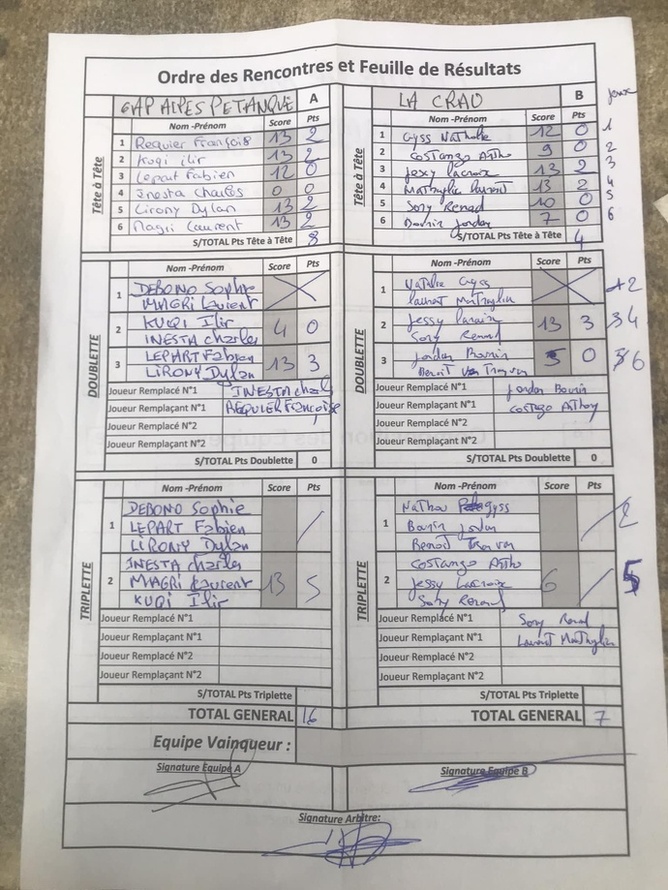 Ordre des Rencontres et Feuille de Résultats
GAP ALPES PETANQUE A
Nom -Prénom Score Pts
Tête à Tête
1 Requier François 13 2
2 Kuqi ilir 13 2
3 Lepart Fabien 12 0
4 Inesta Charles 0 0
5 Lirony Dylan 13 2
6 Magri Laurent 13 2
S/TOTAL Pts Tête à Tête 8
LA CRAU B
Nom -Prénom Score Pts
Tête à Tête
1 Gyss Nathalie 12 0 1
2 Costanzo 9 0 2
3 Jessy Lacroix 13 2 3
4 laurent 13 2 4
5 Sory Renad 10 0 5
6 Bonin Jordan 7 0 6
S/TOTAL Pts Tête à Tête 4
Nom -Prénom Score Pts
DOUBLETTE
1 DEBONO Sophie
MAGRI Laurent
2 KUQI Ilir 4 0
INESTA Charles
3 LEPART Fabien 13 3
LIRONY Dylan
Joueur Remplacé N°1 INESTA
Joueur Remplaçant N°1 REQUIER Francoise
Joueur Remplacé N°2
Joueur Remplaçant N°2
S/TOTAL Pts Doublette 0
Nom -Prénom Score Pts
DOUBLETTE
1 Gyss 2
laurent
2 Jessy Lacroix 13 3 4
Sory Renad
3 Jordan Bonin 5 0 6
Benoit
Joueur Remplacé N°1 Jordan Bonin
Joueur Remplaçant N°1
Joueur Remplacé N°2
Joueur Remplaçant N°2
S/TOTAL Pts Doublette 0
Nom -Prénom Score Pts
TRIPLETTE
1 DEBONO Sophie
LEPART Fabien
LIRONY Dylan
2 INESTA Charles
MAGRI Laurent 13 5
KUQI Ilir
Joueur Remplacé N°1
Joueur Remplaçant N°1
Joueur Remplacé N°2
Joueur Remplaçant N°2
S/TOTAL Pts Triplette
TOTAL GENERAL 16
Nom -Prénom Score Pts
TRIPLETTE
1 gyss 2
Bonin Jordan
Benoit
2 Costanzo
Jessy Lacroix 6 5
Sory Renad
Joueur Remplacé N°1 Sory Renad
Joueur Remplaçant N°1 Laurent
Joueur Remplacé N°2
Joueur Remplaçant N°2
S/TOTAL Pts Triplette
TOTAL GENERAL 7
Equipe Vainqueur :
Signature Equipe A
Signature Equipe B
Signature Arbitre: